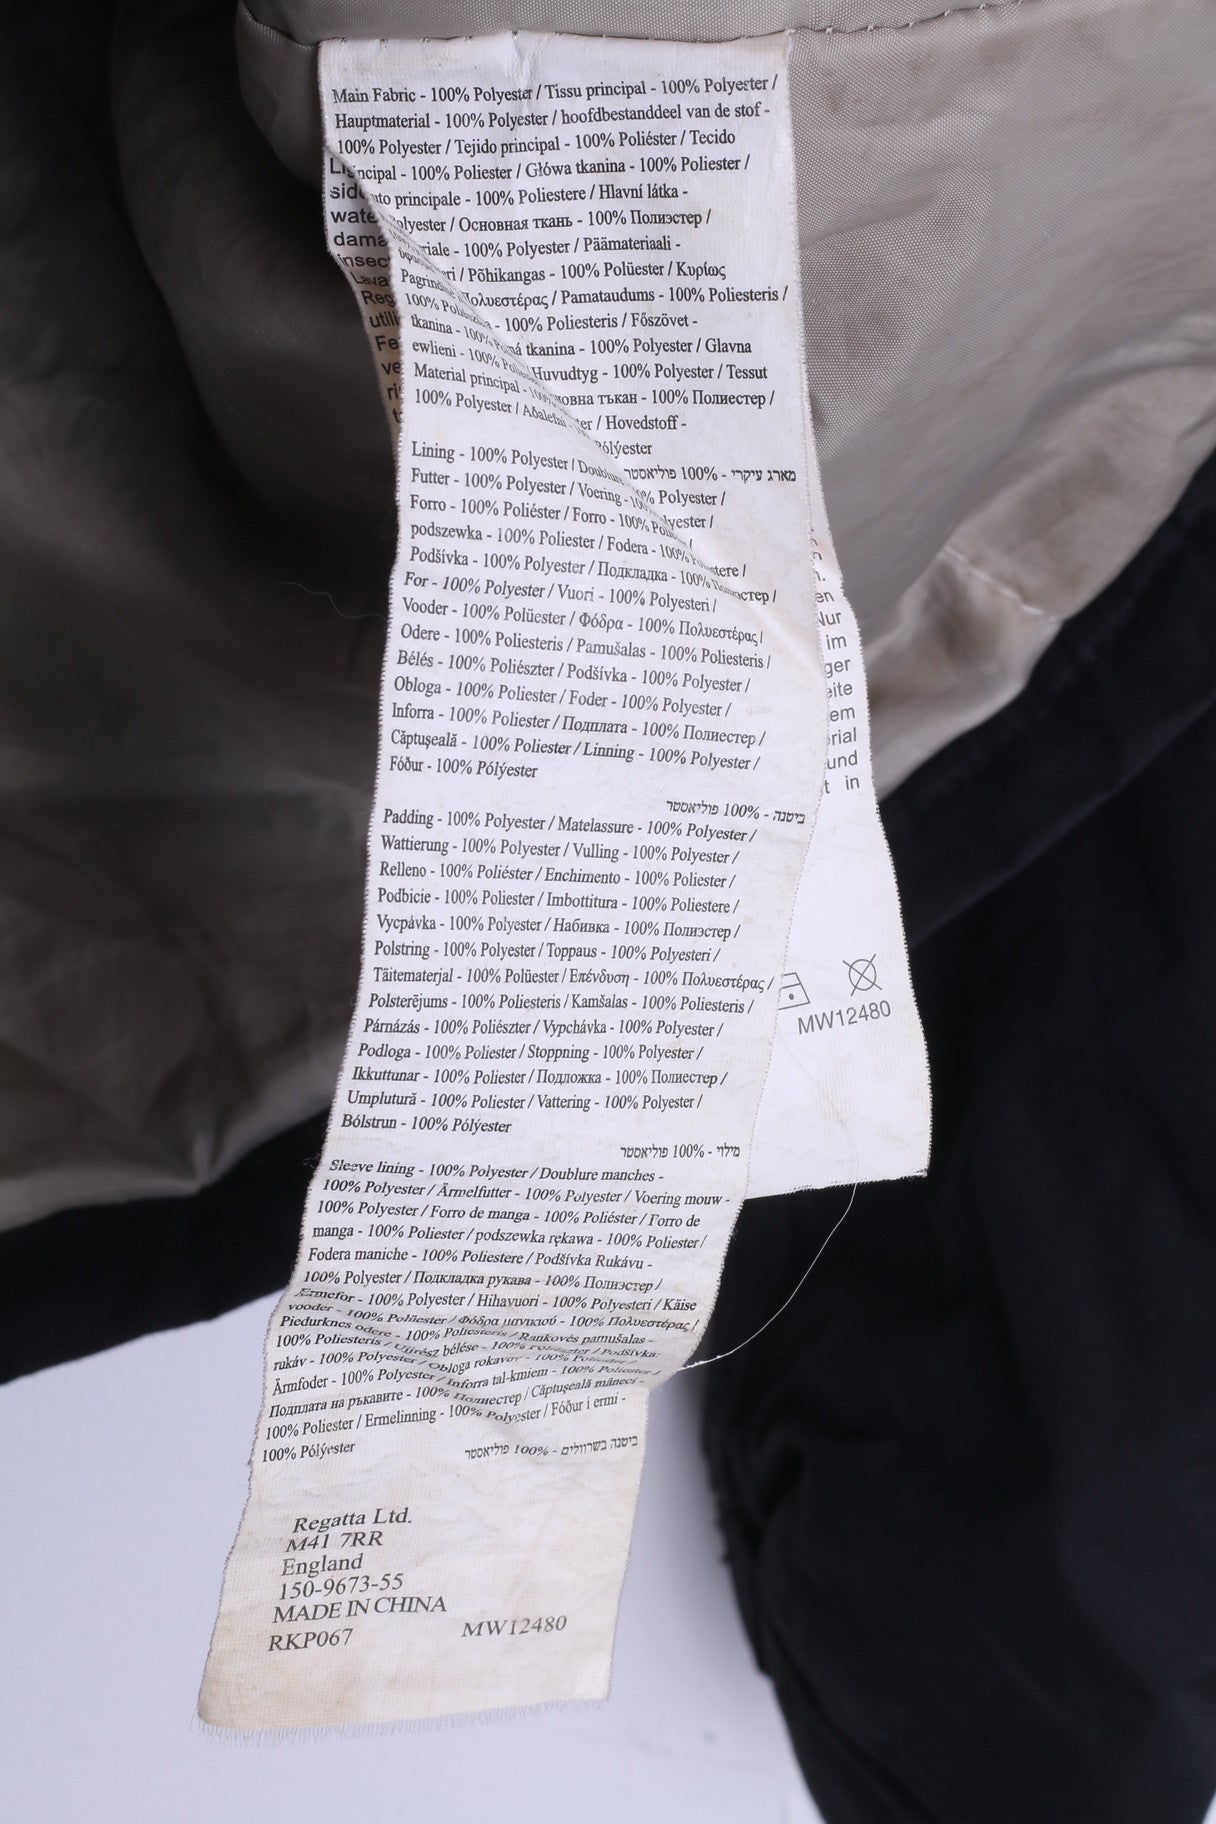 Main Fabric - 100% Polyester / Tissu principal - 100% Polyester /
Hauptmaterial - 100% Polyester / hoofdbestanddeel van de stof -
100% Polyester / Tejido principal - 100% Poliéster / Tecido
100% Poliester / Główa tkanina - 100% Poliester /
principale - 100% Poliestere / Hlavní látka -
/ Основная ткань - 100% Полиэстер /
- 100% Polyester / Päämateriaali -
/ Põhikangas - 100% Polüester / Κυρίως
/ Pamataudums - 100% Poliesteris /
Pagrindinė
- 100% Poliesteris / Főszövet -
tkanina - tkanina - 100% Polyester / Glavna
ewlieni - 100% Huvudtyg - 100% Polyester / Tessut
Material principal - тъкан - 100% Полиестер /
100% Polyester / / Hovedstoff -
Pólýester
מארג עיקרי - 100% פוליאסטר
Lining - 100% Polyester / Doublure 100% Polyester /
Futter - 100% Polyester / Voering -
Forro - 100% Poliéster / Forro - 100%
podszewka - 100% Poliester / Fodera - 100%
Podšívka - 100% Polyester / Подкладка - 100% Полиэстер /
For - 100% Polyester / Vuori - 100% Polyesteri /
Vooder - 100% Polüester / Φόδρα - 100% Πολυεστέρας /
Odere - 100% Poliesteris / Pamušalas - 100% Poliesteris /
Bélés - 100% Poliészter / Podšívka - 100% Polyester /
Obloga - 100% Poliester / Foder - 100% Polyester /
Inforra - 100% Poliester / Подплата - 100% Полиестер /
Căptuşeală - 100% Poliester / Linning - 100% Polyester /
Fóður - 100% Pólýester
ביטנה - 100% פוליאסטר
Padding - 100% Polyester / Matelassure - 100% Polyester /
Wattierung - 100% Polyester / Vulling - 100% Polyester /
Relleno - 100% Poliéster / Enchimento - 100% Poliester /
Podbicie - 100% Poliester / Imbottitura - 100% Poliestere /
Vycpávka - 100% Polyester / Набивка - 100% Полиэстер /
Polstring - 100% Polyester / Toppaus - 100% Polyesteri /
Täitematerjal - 100% Polüester / Επένδυση - 100% Πολυεστέρας /
Polsterējums - 100% Poliesteris / Kamšalas - 100% Poliesteris /
Párnázás - 100% Poliészter / Vypchávka - 100% Polyester /
Podloga - 100% Poliester / Stoppning - 100% Polyester /
Ikkuttunar - 100% Poliester / Подложка - 100% Полиестер /
Umplutură - 100% Poliester / Vattering - 100% Polyester /
Bólstrun - 100% Pólýester
מילוי - 100% פוליאסטר
Sleeve lining - 100% Polyester / Doublure manches -
100% Polyester / Ärmelfutter - 100% Polyester / Voering mouw -
100% Polyester / Forro de manga - 100% Poliéster / Forro de
manga - 100% Poliester / podszewka rękawa - 100% Poliester /
Fodera maniche - 100% Poliestere / Podšívka Rukávu -
100% Polyester / Подкладка рукава - 100% Полиэстер /
Ermefor - 100% Polyester / Hihavuori - 100% Polyesteri / Käise
vooder - 100% Polüester / Φόδρα μανικιού - 100% Πολυεστέρας /
Piedurknes odere - 100% Poliesteris / Rankovės pamušalas -
100% Poliesteris / Ujjrész bélése - 100% Poliészter / Podšívka
rukáv - 100% Polyester / Obloga rokavov - 100% Poliester /
Ärmfoder - 100% Polyester / Inforra tal-kmiem - 100% Poliester /
Подплата на ръкавите - 100% Полиестер / Căptuşeală mâneci -
100% Poliester / Ermelinning - 100% Polyester / Fóður í ermi -
100% Pólýester
ביטנה בשרוולים - 100% פוליאסטר
Regatta Ltd.
M41 7RR
England
150-9673-55
MADE IN CHINA
RKP067 MW12480
Nur
im
und
in
MW12480